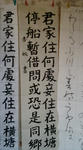 君家住何處妾住在橫塘
停船暫借問或恐是同鄉
君家住何處妾住在橫塘